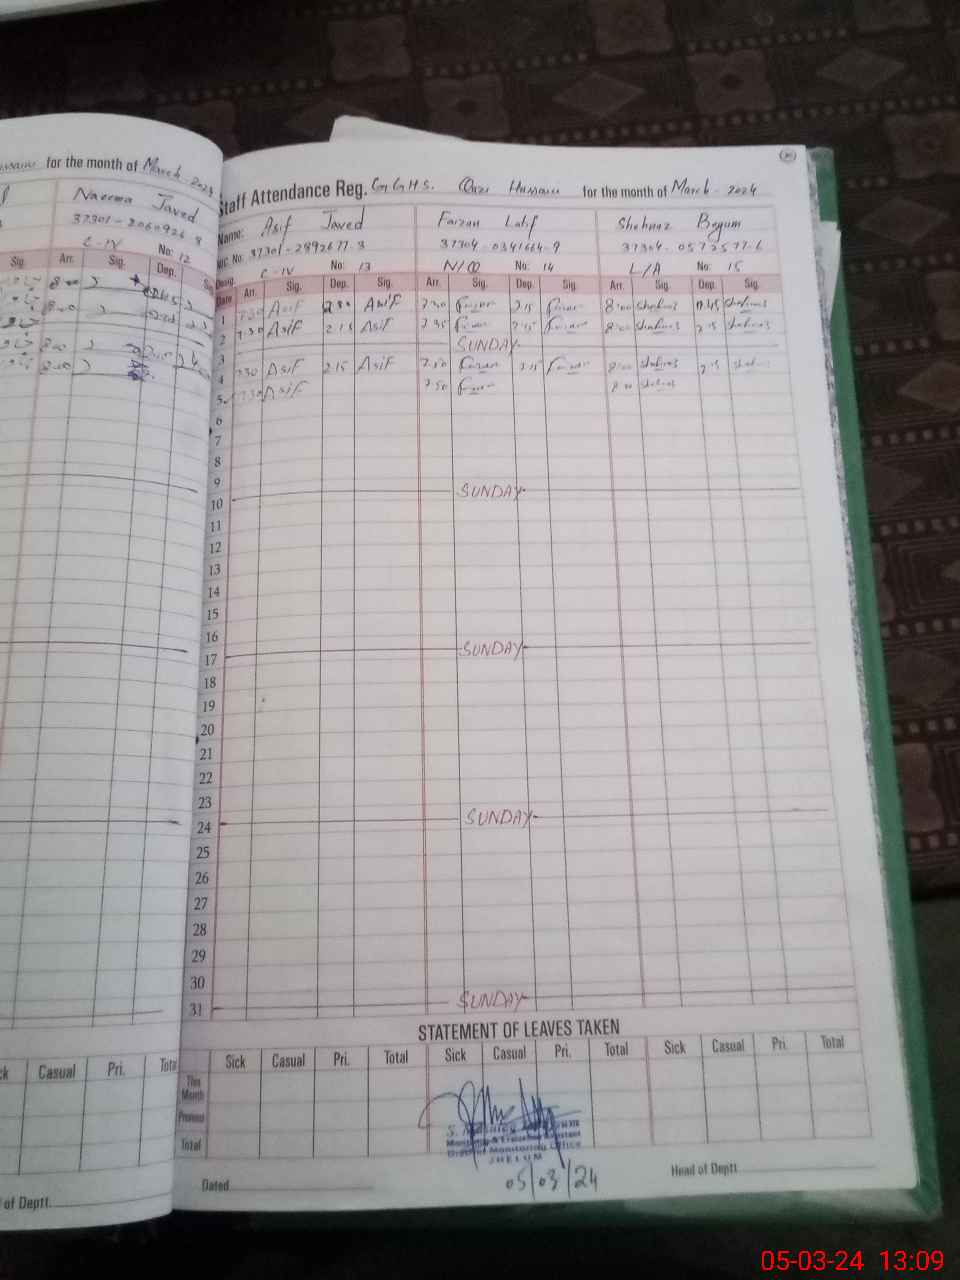 for the month of March-2024
Naeema Javed
37301-2060926-8
C-IV No: 12
Sig. Arr. Sig. Dep.
8:00
8:00
8:00
8:00
Casual Pri. Total
of Deptt.
Staff Attendance Reg. GGHS. Qazi Hussain for the month of March-2024
Name: Asif Javed Faizan Latif Shehnaz Begum
NIC No: 37301-2892677-3 37304-0341664-9 37304-0572577-6
Desig. C-IV No: 13 N/Q No: 14 L/A No: 15
Date Arr. Sig. Dep. Sig. Arr. Sig. Dep. Sig. Arr. Sig. Dep. Sig.
1 7:30 Asif Asif 7:30 Faizan 2:15 Faizan 8:00 Shehnaz 12:45 Shehnaz
2 7:30 Asif 2:15 Asif Faizan 2:15 Faizan 8:00 Shehnaz 2:15 Shehnaz
3 SUNDAY
4 7:30 Asif 2:15 Asif 7:50 Faizan 2:15 Faizan 8:00 Shehnaz 2:15 Shehnaz
5 7:30 Asif 7:50 Faizan 8:00 Shehnaz
6
7
8
9
10 SUNDAY
11
12
13
14
15
16
17 SUNDAY
18
19
20
21
22
23
24 SUNDAY
25
26
27
28
29
30
31 SUNDAY
STATEMENT OF LEAVES TAKEN
Sick Casual Pri. Total Sick Casual Pri. Total Sick Casual Pri. Total
This Month
Previous
Total
District Monitoring Office
JHELUM
05/03/24
Dated Head of Deptt.
05-03-24 13:09